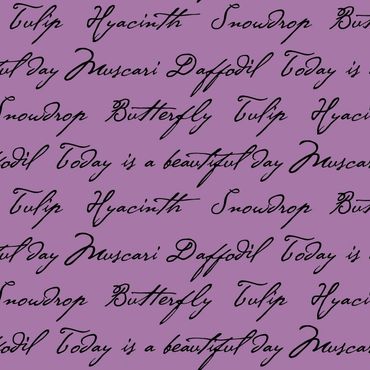 Tulip Hyacinth Snowdrop But
ful day Muscari Daffodil Today is
Snowdrop Butterfly Tulip Hyaci
odil Today is a beautiful day Muscar
Tulip Hyacinth Snowdrop But
ful day Muscari Daffodil Today is
Snowdrop Butterfly Tulip Hyaci
odil Today is a beautiful day Muscar